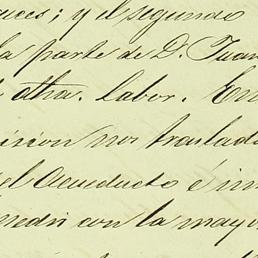 ces; y el segundo
la parte de D. Juan
otha. labor. En
icion nos traslada
el Acueducto é in
medir con la mayo